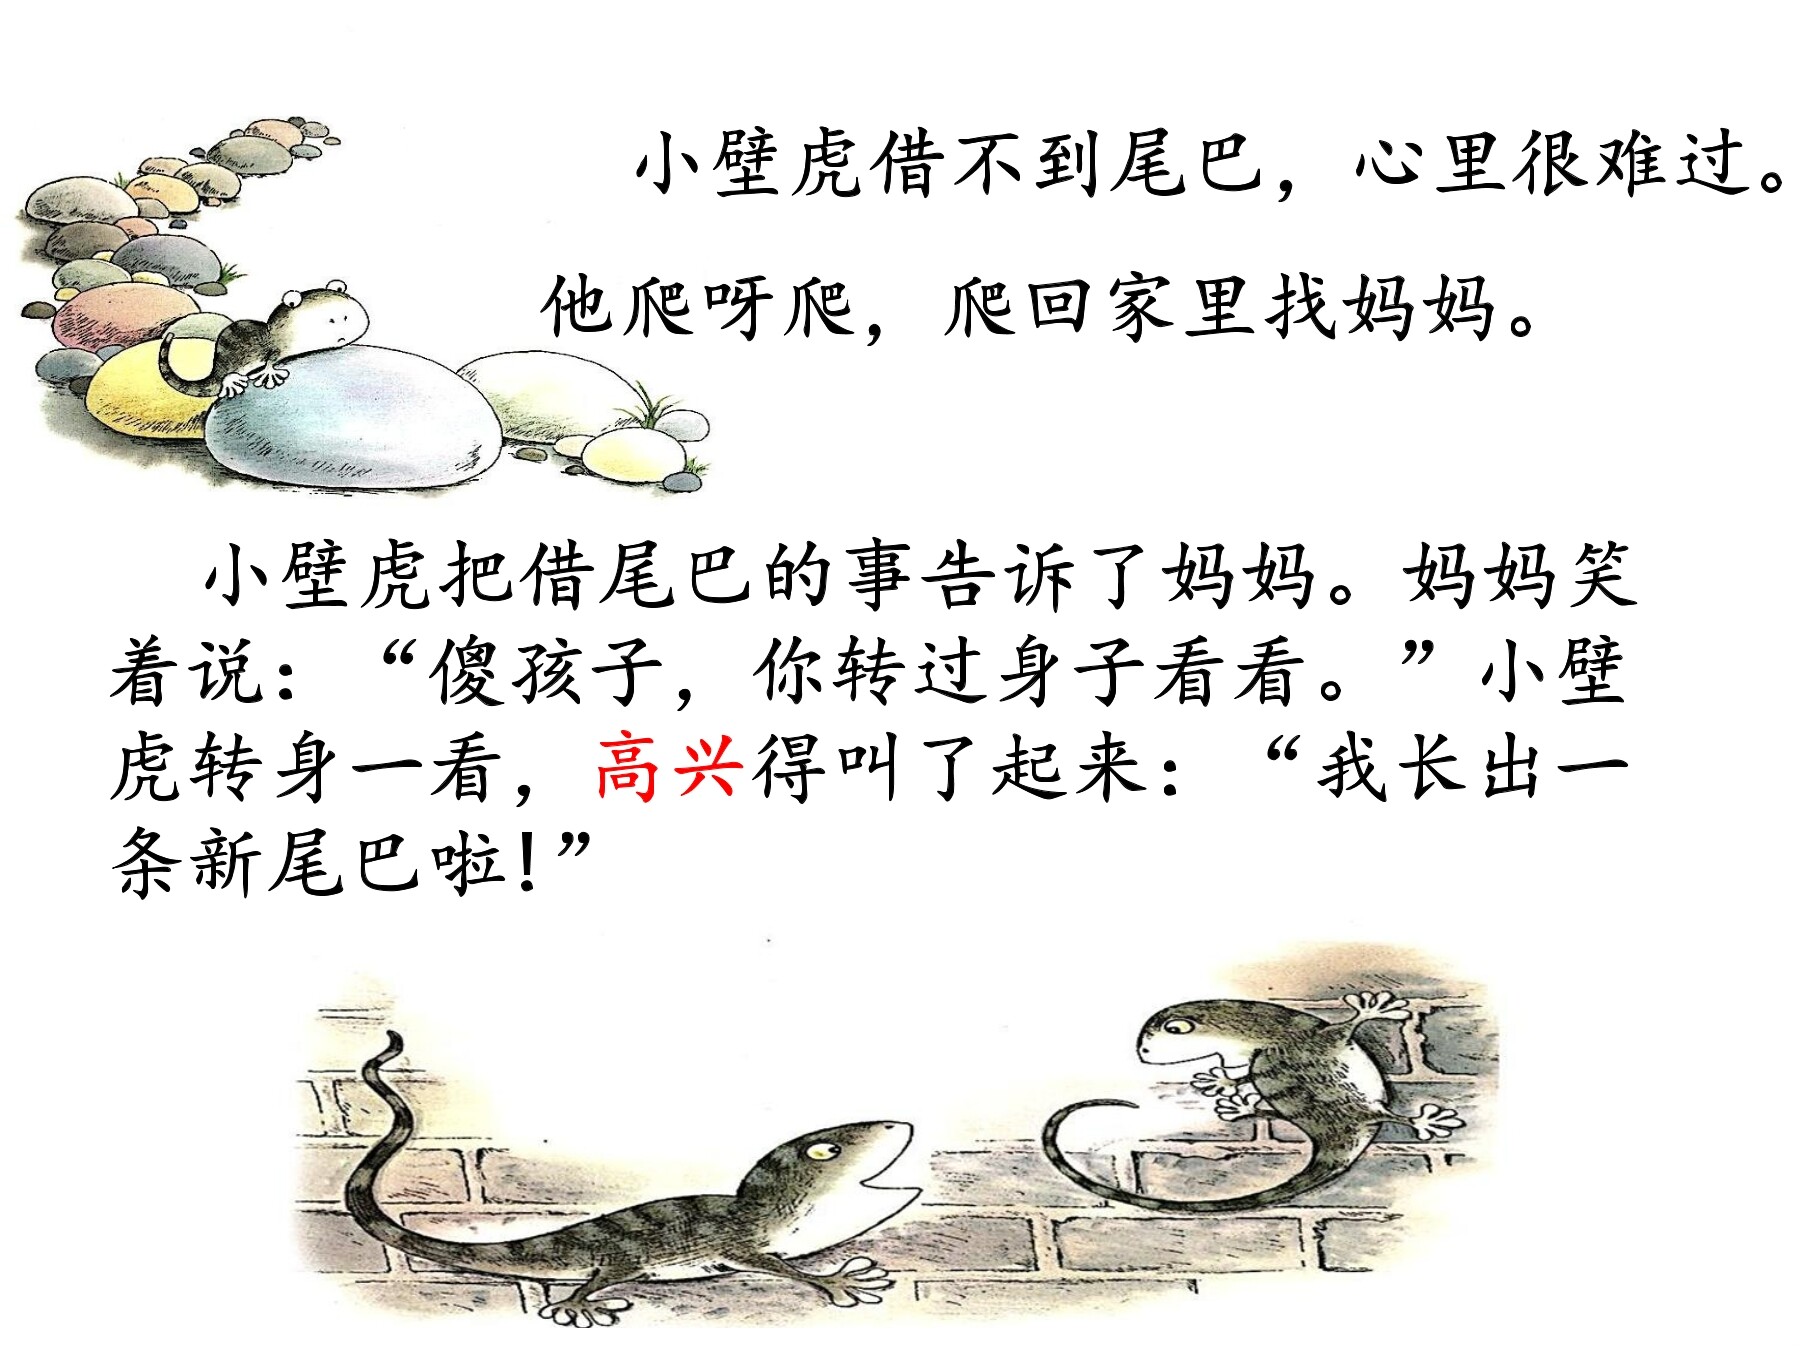 小壁虎借不到尾巴，心里很难过。
他爬呀爬，爬回家里找妈妈。
小壁虎把借尾巴的事告诉了妈妈。妈妈笑
着说：“傻孩子，你转过身子看看。”小壁
虎转身一看，高兴得叫了起来：“我长出一
条新尾巴啦！”